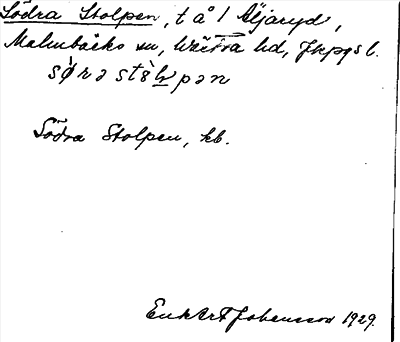 Södra Stolpen, t å / Äljaryd,
Malmbäcks sn, Västra hd, Jkpgs l.
sø̀ra stòlpən
Södra Stolpen, kb.
Johansson 1929.